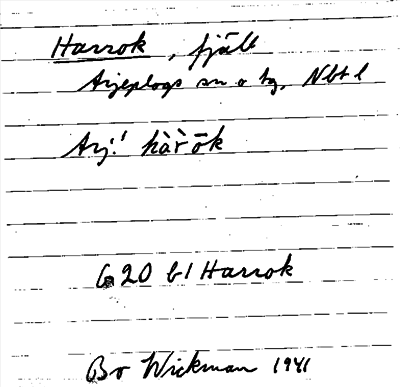 Harrok, fjäll
Arjeplogs sn o tg, Nbt l
Arj.! hàr̀ōk
G 20 b l Harrok
Bo Wickman 1941